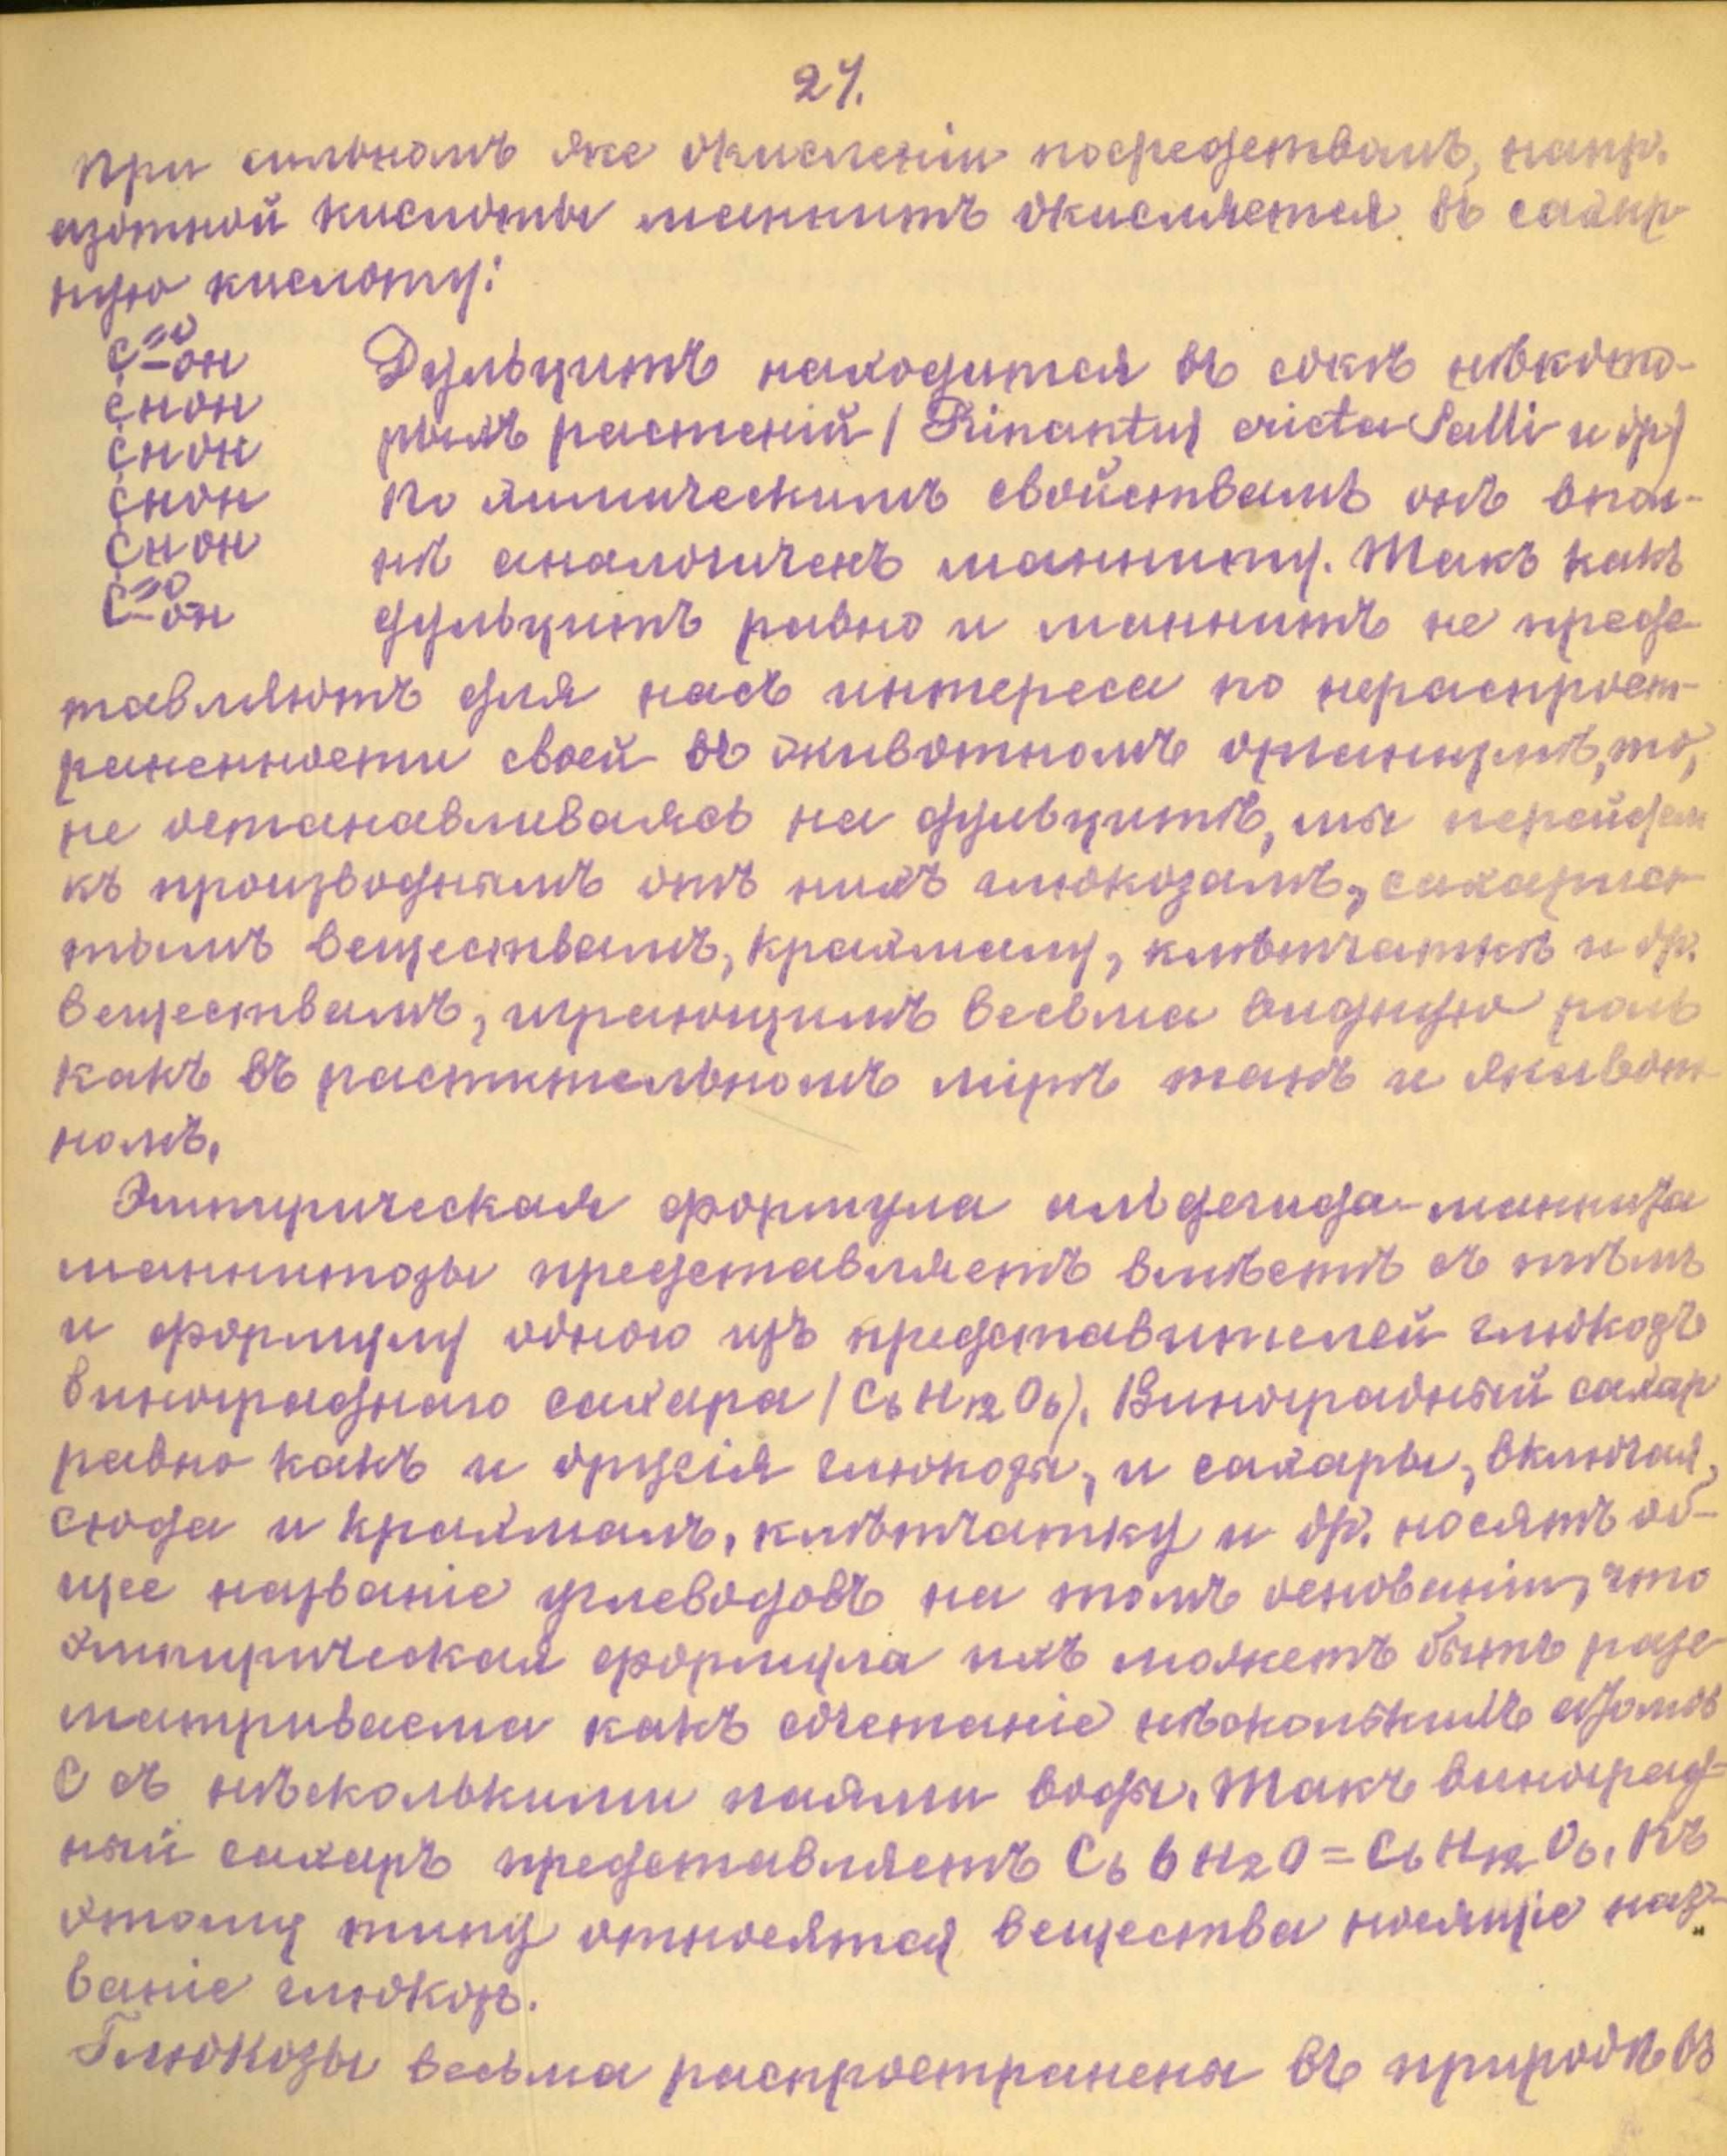 27.
При сильномъ же окисленіи посредствомъ, напр.
азотной кислоты маннитъ окисляется въ сахар
ную кислоту:
C=O
-OH
CHOH
CHOH
CHOH
CHOH
C=O
-OH
Дульцитъ находится въ сокѣ нѣкото-
рыхъ растеній (Rinantus cricta Salli и др)
По химическимъ свойствамъ онъ впол-
нѣ аналогиченъ манниту. Такъ какъ
дульцитъ равно и маннитъ не предс
тавляютъ для насъ интереса по нераспрост-
раненности своей въ животномъ организмѣ, то,
не останавливаясь на дульцитѣ, мы перейдем
къ производнымъ отъ нихъ глюкозамъ, сахарис
тымъ веществамъ, крахмалу, клѣтчаткѣ и др.
веществамъ, играющимъ весьма видную роль
какъ въ растительномъ мірѣ такъ и живот
номъ.
Эмпирическая формула альдегида маннита
маннитозы представляетъ вмѣстѣ съ тѣмъ
и формулу одного изъ представителей глюкозъ
винограднаго сахара (C6H12O6). Виноградный сахар
равно какъ и другія глюкозы, и сахары, включая,
сюда и крахмалъ, клѣтчатку и др. носятъ об-
щее названіе углеводовъ на томъ основаніи, что
эмпирическая формула ихъ можетъ быть разс
матриваема какъ сочетаніе нѣсколькихъ атомовъ
C съ нѣсколькими паями воды. Такъ виноград=
ный сахаръ представляетъ C6 6H2O = C6H12O6. Къ
этому типу относятся вещества носящіе наз-
ваніе глюкозъ.
Глюкозы весьма распространены въ природѣ въ